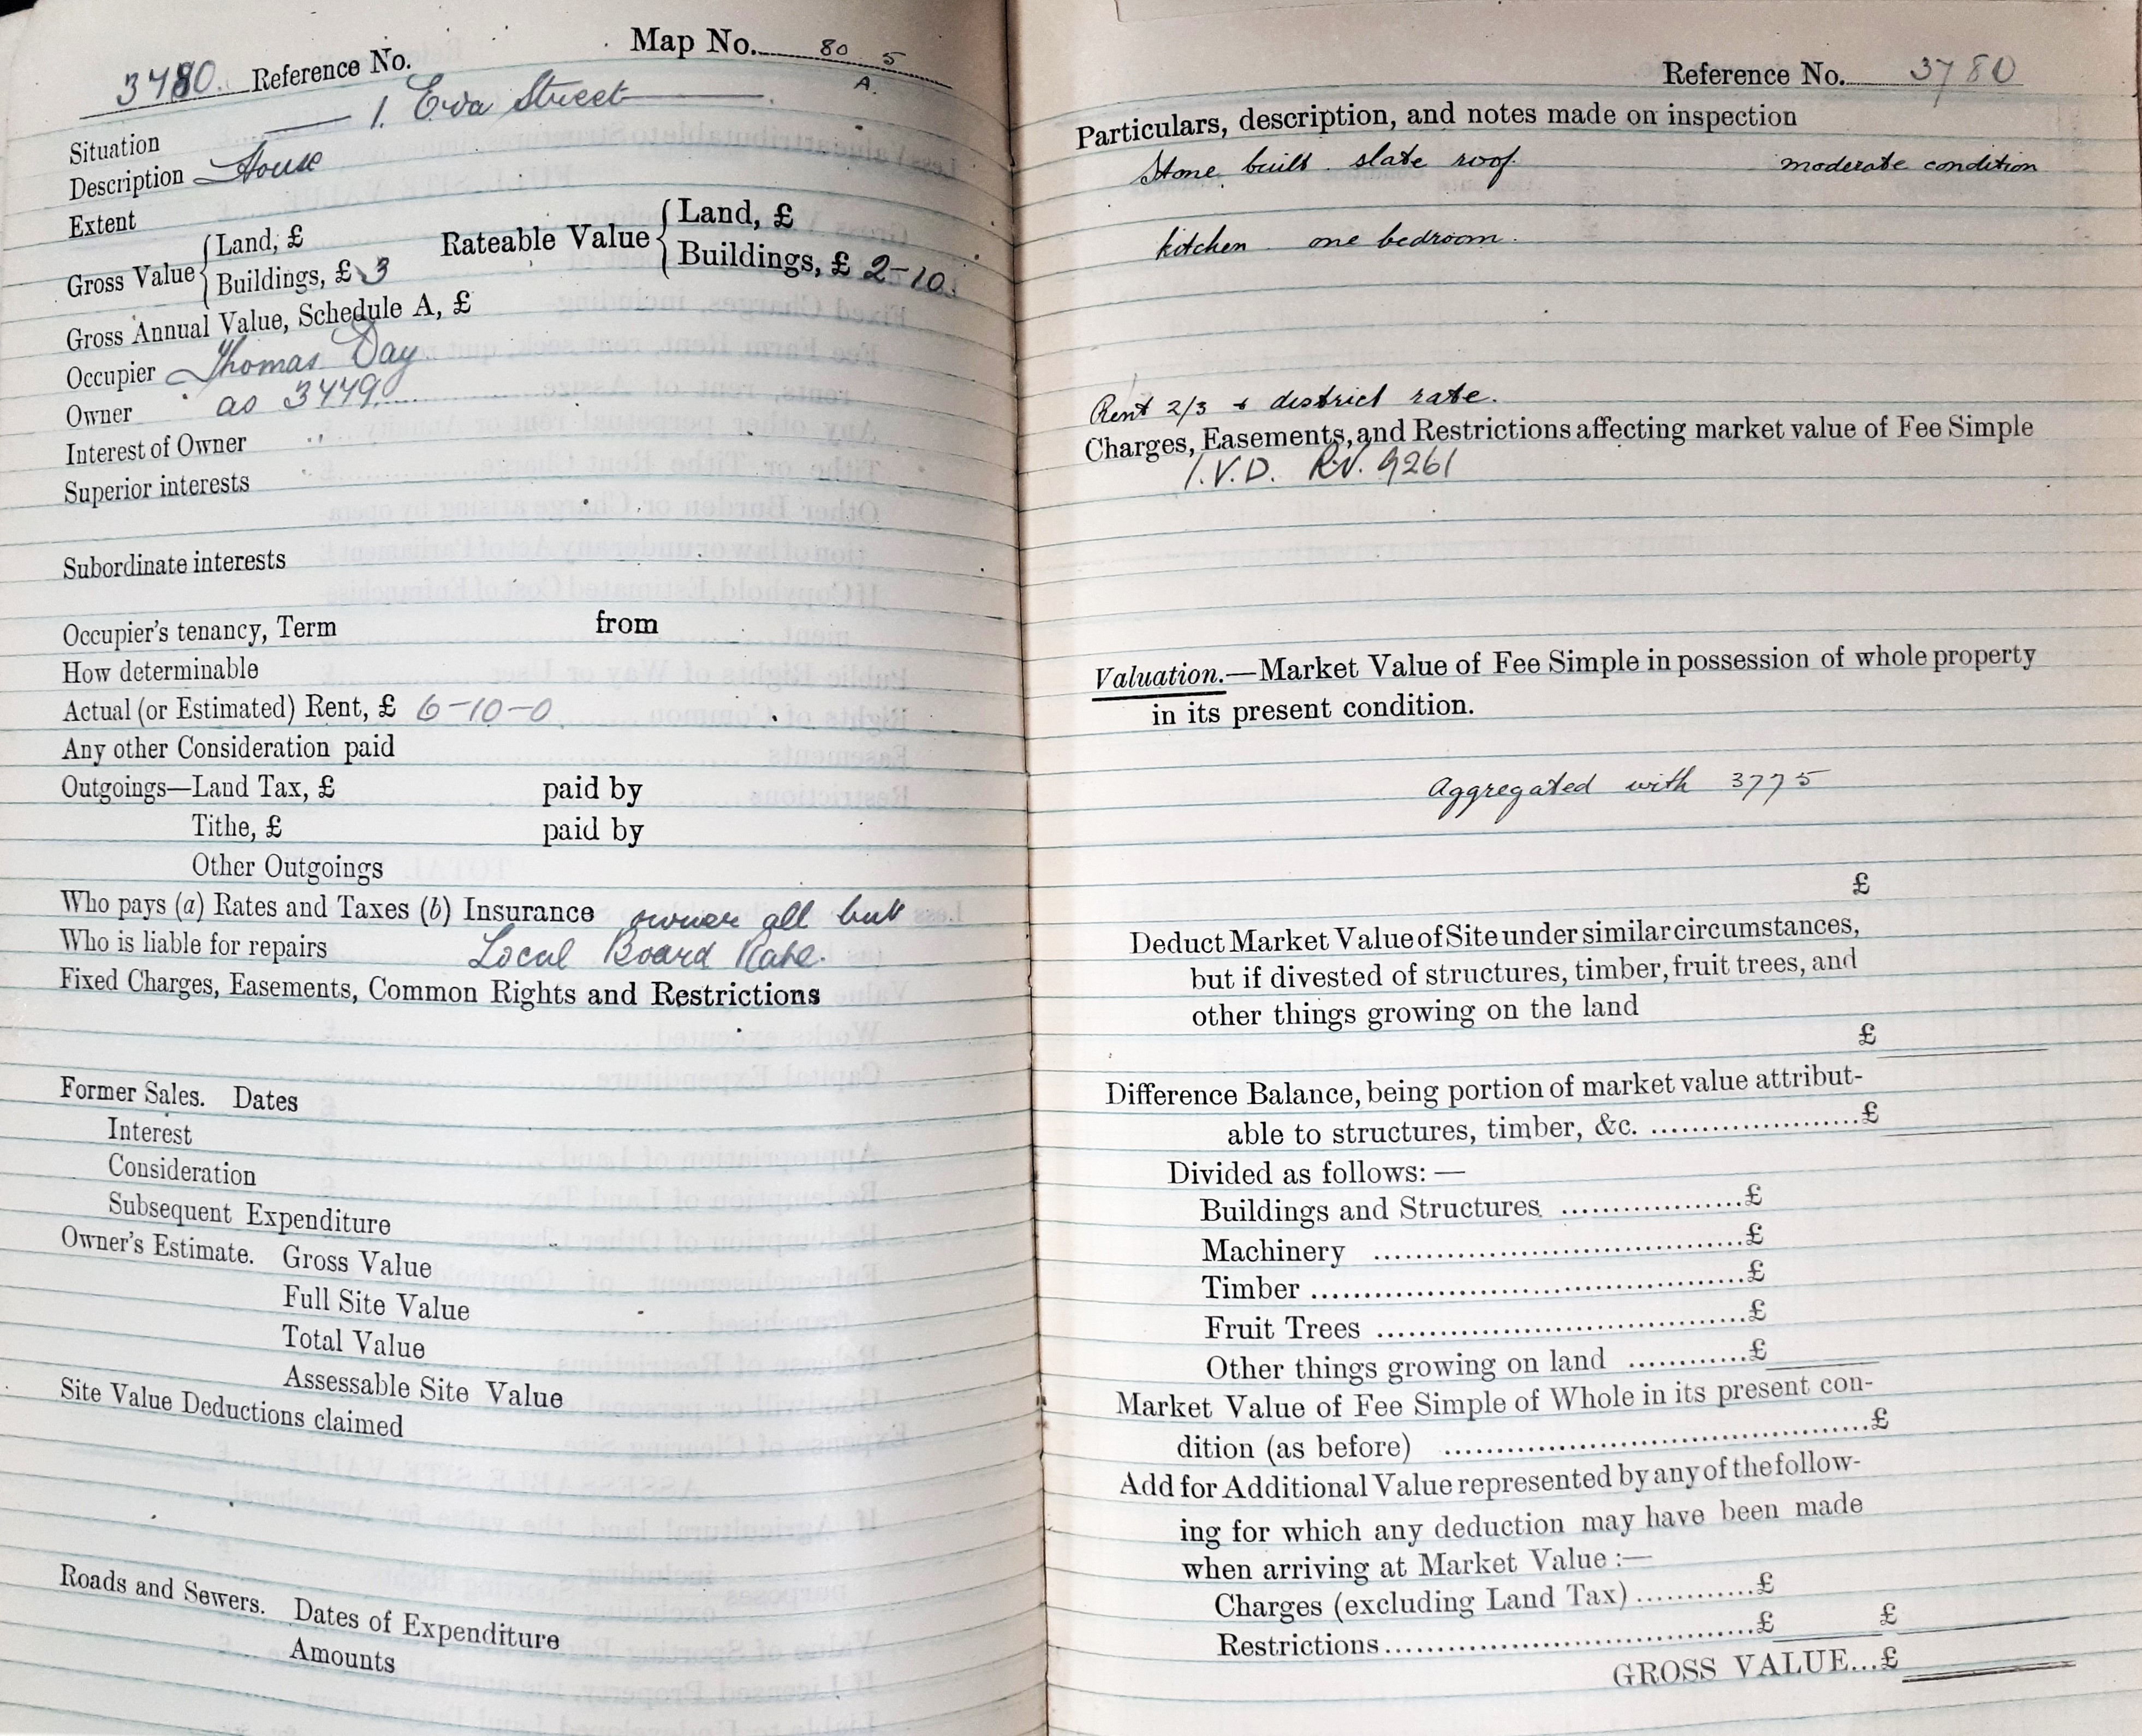 3780. Reference No. Map No. 80 5
A.
Situation 1. Eva Street
Description House
Extent
Gross Value { Land, £ Rateable Value { Land, £
Buildings, £ 3 Buildings, £ 2-10.
Gross Annual Value, Schedule A, £
Occupier Thomas Day
Owner as 3449
Interest of Owner "
Superior interests "
Subordinate interests
Occupier's tenancy, Term from
How determinable
Actual (or Estimated) Rent, £ 6-10-0
Any other Consideration paid
Outgoings—Land Tax, £ paid by
Tithe, £ paid by
Other Outgoings
Who pays (a) Rates and Taxes (b) Insurance owner all but
Who is liable for repairs Local Board Rate.
Fixed Charges, Easements, Common Rights and Restrictions
Former Sales. Dates
Interest
Consideration
Subsequent Expenditure
Owner's Estimate. Gross Value
Full Site Value
Total Value
Assessable Site Value
Site Value Deductions claimed
Roads and Sewers. Dates of Expenditure
Amounts
Reference No. 3780
Particulars, description, and notes made on inspection
Stone built slate roof. moderate condition
kitchen one bedroom.
Rent 2/3 + district rate.
Charges, Easements, and Restrictions affecting market value of Fee Simple
I.V.D. RN. 9261
Valuation.—Market Value of Fee Simple in possession of whole property
in its present condition.
Aggregated with 3775
£
Deduct Market Value of Site under similar circumstances,
but if divested of structures, timber, fruit trees, and
other things growing on the land
£
Difference Balance, being portion of market value attribut-
able to structures, timber, &c. ......................£
Divided as follows: —
Buildings and Structures ...................£
Machinery .......................................£
Timber .............................................£
Fruit Trees ......................................£
Other things growing on land ............£
Market Value of Fee Simple of Whole in its present con-
dition (as before) .............................................£
Add for Additional Value represented by any of the follow-
ing for which any deduction may have been made
when arriving at Market Value :—
Charges (excluding Land Tax) ............£
Restrictions.......................................£ £
GROSS VALUE...£